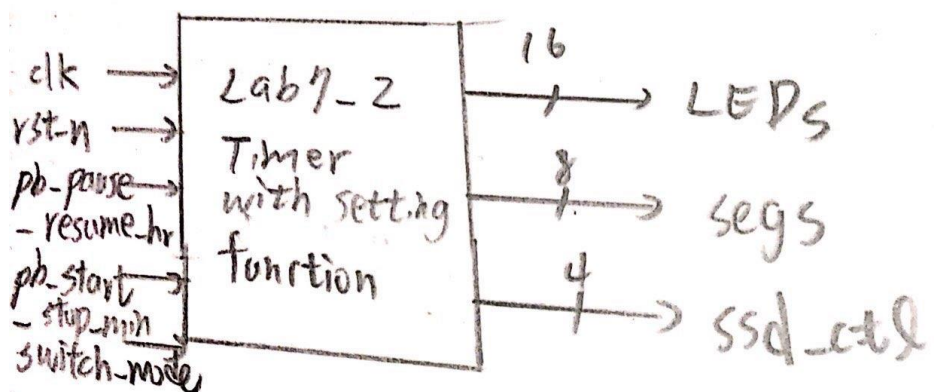 clk
rst_n
pb_pause
_resume_hr
pb_start
_stop_min
switch_mode
Lab7_2
Timer
with setting
function
16
LEDs
8
segs
4
ssd_ctl